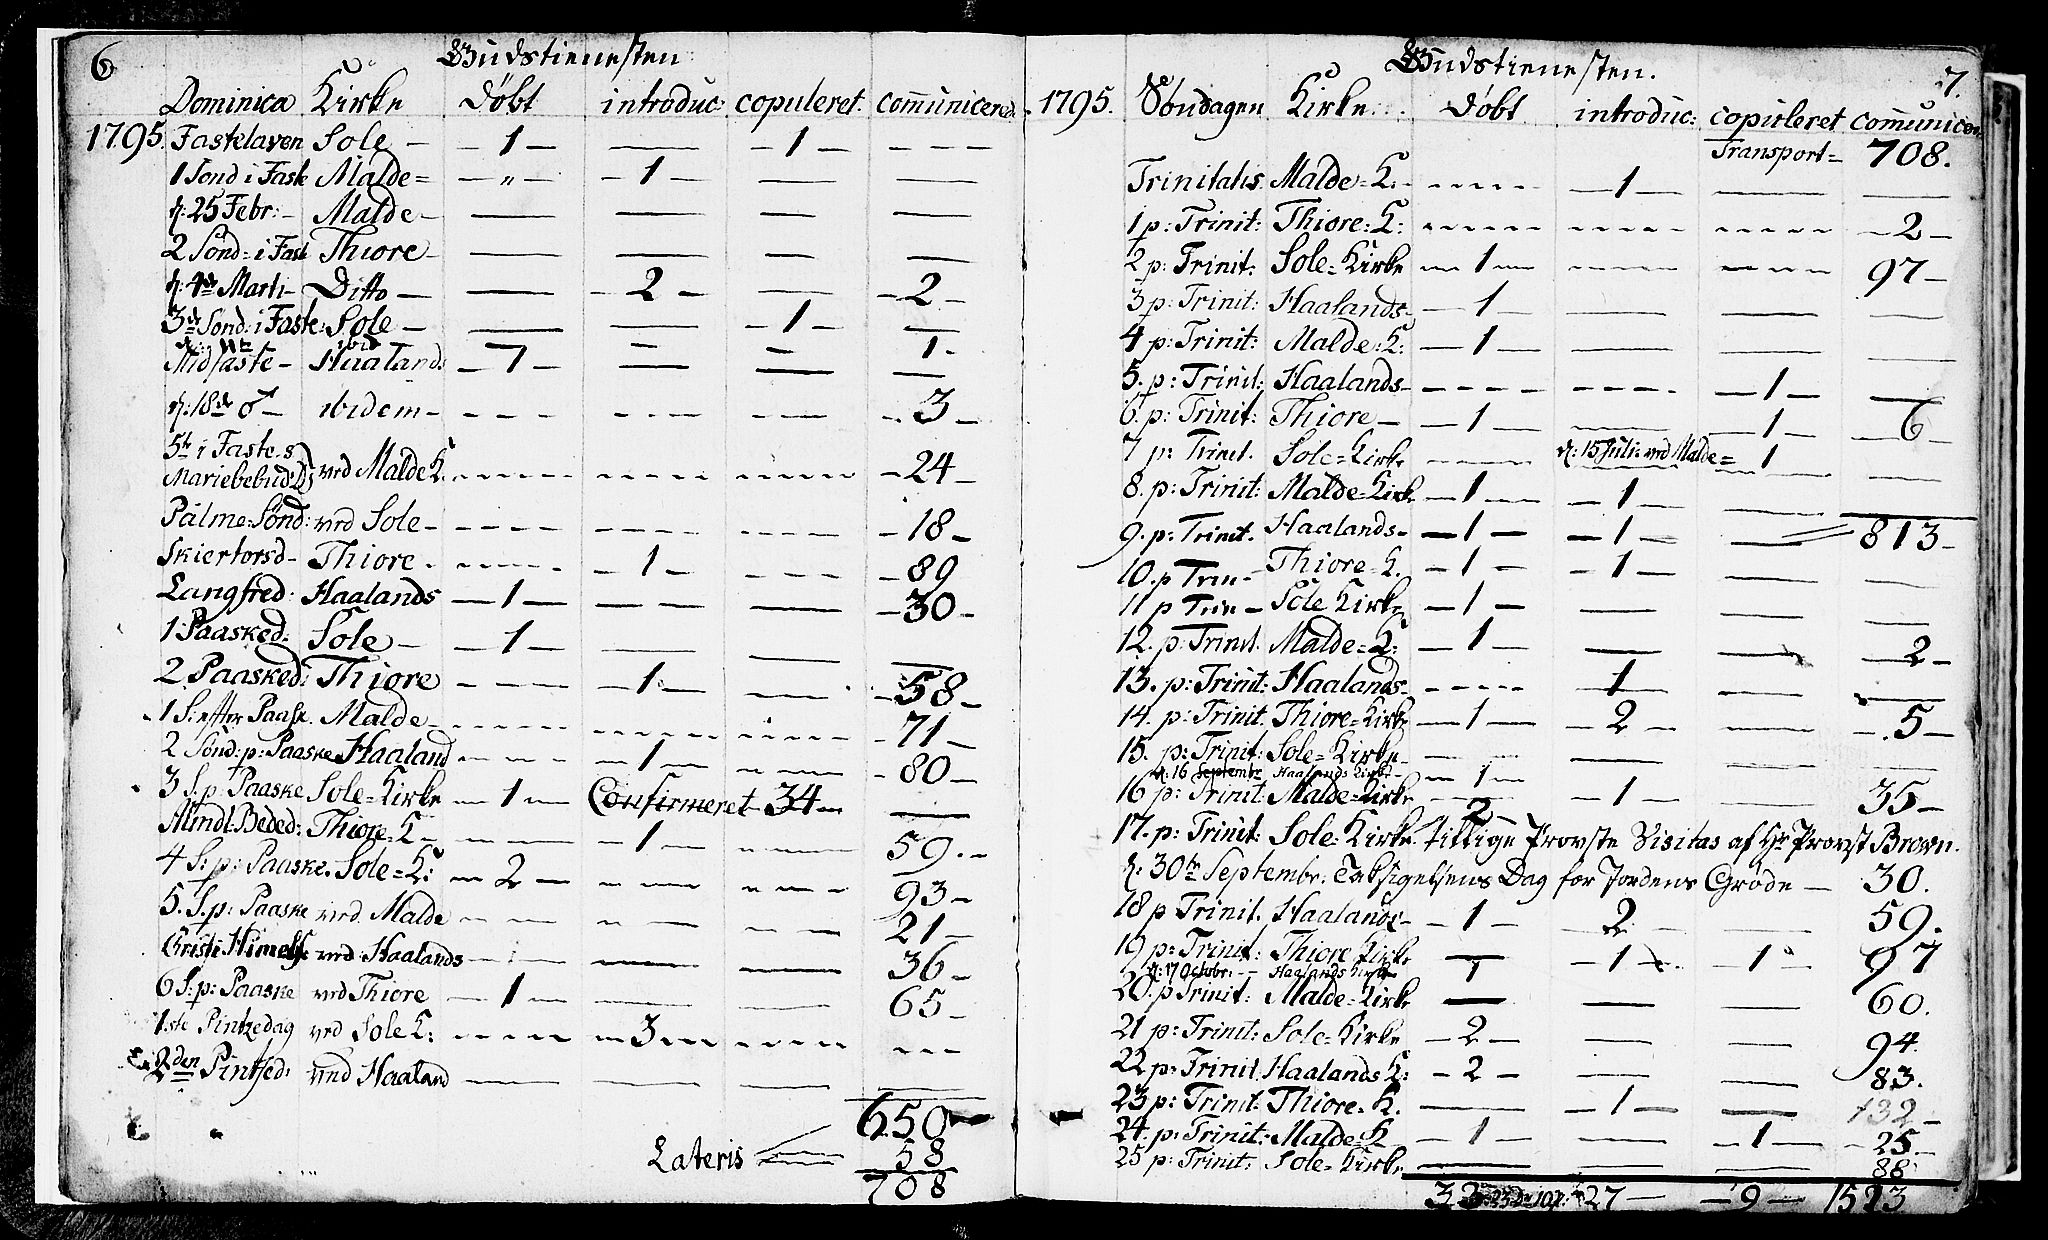 6
Gudstienesten
Dominica Kirke døbt introduc: copuleret. comunicered
1795. Fastelaven Sole — — 1 — — — 1 — — — —
1 Sond i Faste Malde= — „ — — 1 — — —
d: 25 Febr: — Malde — — — — —
2 Sönd: i Fast Thiore — — — — —
d: 4de Marti — Ditto — — — 2 — — — 2 —
3de Sönd: i Faste: Sole — — — — 1 — —
d: 11te ibid 1 -
Midfaste — Haalands — 7 — — — —
d: 18de ♂ — ibidem — - - - - - - - - - - 3 —
5te i Faste &
Mariebebud: D: ved Malde K. - - - - - - - - - — 24 —
Palme=Sönd: ved Sole — - - - - - - - - - — 18 —
Skiertorsd — Thiore - - - - - — 1 — - - - — 89
Langfred: Haalands — 1 — — — — — — 30 —
1 Paasked: Sole — — 1 — — — —
2 Paasked: Thiore — — — — 1 — — — — 58 —
1 S: efter Paask. Malde — - - - - - - - - - — 71 —
2 Sönd: p: Paaske Haaland - - - — 1 — - - - - 80 —
3 S. p: Paaske Sole=Kirke — 1 — Confirmeret 34 — —
Almdl: Beded: Thiore=K — — — — 1 — - - - 59. -
4 S: p: Paaske. Sole=K: — 2 — - - - - - - 93 —
5. S. p: Paaske ved Malde - - - - - - - - - 21 —
Christi Himelf: ved Haalands — — — — — 36 —
6 S: p: Paaske ved Thiore — 1 — — — 65 —
1ste Pintzedag ved Sole K: - - - - — 3 — - - - - - - -
2den Pintsed: vmd Haaland — — — —
650
Lateris 58
708
7.
Gudstienesten.
1795. Søndagen Kirke døbt introduc: copuleret comunicer
Transport= 708.
Trinitatis Malde=K: - - - - — 1 — — —
1 p: Trinit: Thiore: K: - - - - - - - - - - - - — 2 —
2 p: Trinit: Sole=Kirke — 1 — - - - - - - - - 97 —
3 p: Trinit: Haalands — — 1 — — — —
4 p: Trinit: Malde: K: — 1 — — — —
5. p: Trinit: Haalands — - - - - - - - - — 1 — —
6. p: Trinit: Thiore — — 1 — — — 1 — — 6 —
7 p: Trinit. Sole=Kirke — d: 15 Juli ved Malde= 1 — —
8. p: Trinit: Malde=Kirke — 1 — — 1 — — —
9. p: Trinit. Haalands — — 1 — — 1 — — 813 —
10. p Trin — Thiore=K. — 1 — — 1 — — —
11 p Trin — Sole Kirke — 1 — — — —
12. p: Trinit. Malde=K: — 1 — — — — 2 —
13. p: Trinit: Haalands — - - - - 1 — —
14. p: Trinit. Thiore=Kirke — 1 — — 2 — — — — 5 —
15. p: Trinit: Sole=Kirke — — — — —
d: 16 Septembr Haalands Kirke — — 1 —
16 p: Trinit: Malde=Kirke 2 — 1 — — 35 —
17. p: Trinit: Sole=Kirke. tillige Provste Visitas af Hr Provst Brown.
d: 30te Septembr: Taksigelsens Dag for Jordens Grøde — 30.
18 p Trinit. Haalands — — 1 — 2 — — 59.
19 p: Trinit: Thiore Kirke — — 1 — 1 97
d: 17 Octobr: — Haalands Kirke 1
20. p Trinit: Malde=Kirke — — — 60.
21 p: Trinit: Sole=Kirke — 2 — — — 94.
22 p: Trinit. Haalands K: — 2 — — — 83.
23 p: Trinit: Thiore. K. — — 1 — — 132 —
24. p: Trinit: Malde=K — 1 — — — 1 — — 25 —
25 p: Trinit: Sole=Kirke — — — 88
33 27 — — 9 — 1523